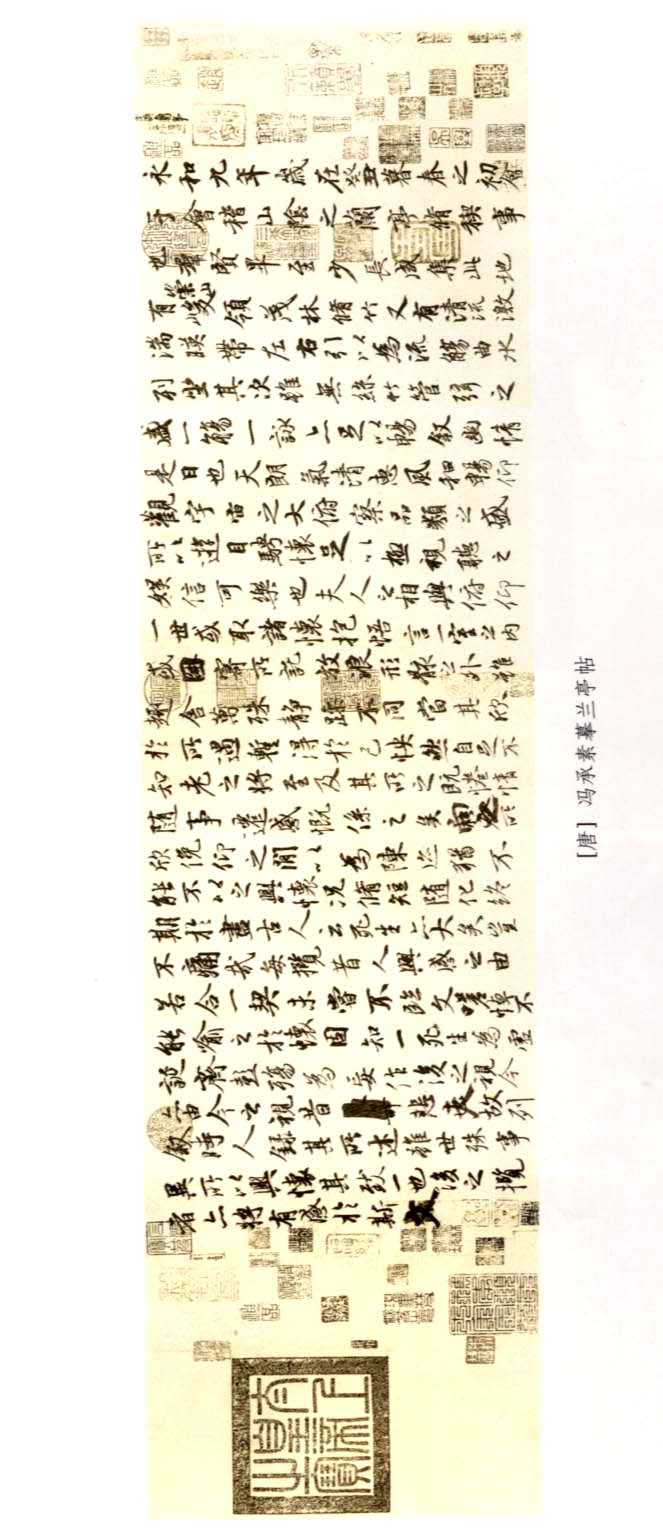 永和九年歲在癸丑暮春之初會
于會稽山陰之蘭亭脩稧事
也羣賢畢至少長咸集此地
有崇山峻領茂林脩竹又有清流激
湍暎帶左右引以為流觴曲水
列坐其次雖無絲竹管弦之
盛一觴一詠亦足以暢敘幽情
是日也天朗氣清惠風和暢仰
觀宇宙之大俯察品類之盛
所以遊目騁懷足以極視聽之
娛信可樂也夫人之相與俯仰
一世或取諸懷抱悟言一室之內
或因寄所託放浪形骸之外雖
趣舍萬殊靜躁不同當其欣
於所遇暫得於己怏然自足不
知老之將至及其所之既惓情
隨事遷感慨係之矣向之所
欣俛仰之閒以為陳迹猶不
能不以之興懷況脩短隨化終
期於盡古人云死生亦大矣豈
不痛哉每攬昔人興感之由
若合一契未嘗不臨文嗟悼不
能喻之於懷固知一死生為虛
誕齊彭殤為妄作後之視今
亦由今之視昔悲夫故列
敘時人錄其所述雖世殊事
異所以興懷其致一也後之攬
者亦將有感於斯文
[唐] 冯承素摹兰亭帖